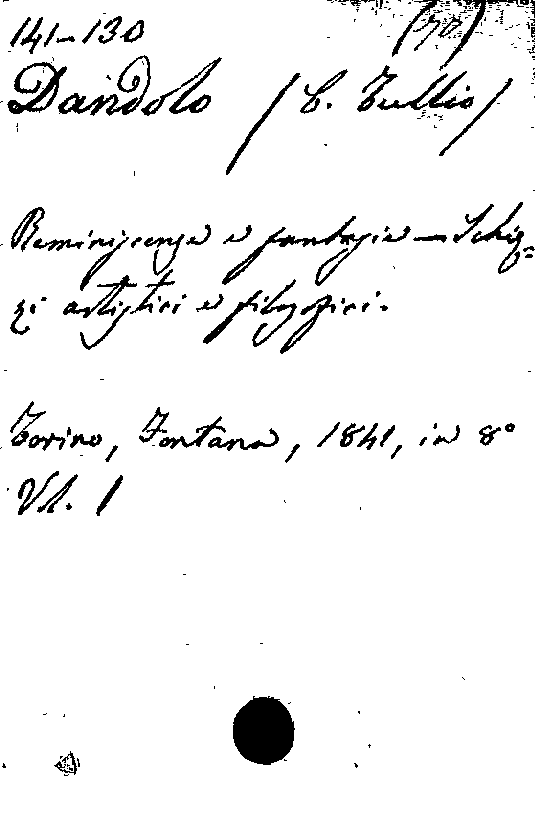 141-130 (70)
Dandolo (C. Tullio)
Reminiscenze e fantasie — Schiz=
zi artistici e filosofici.
Torino, Fontana, 1841, in 8°
Vol. 1